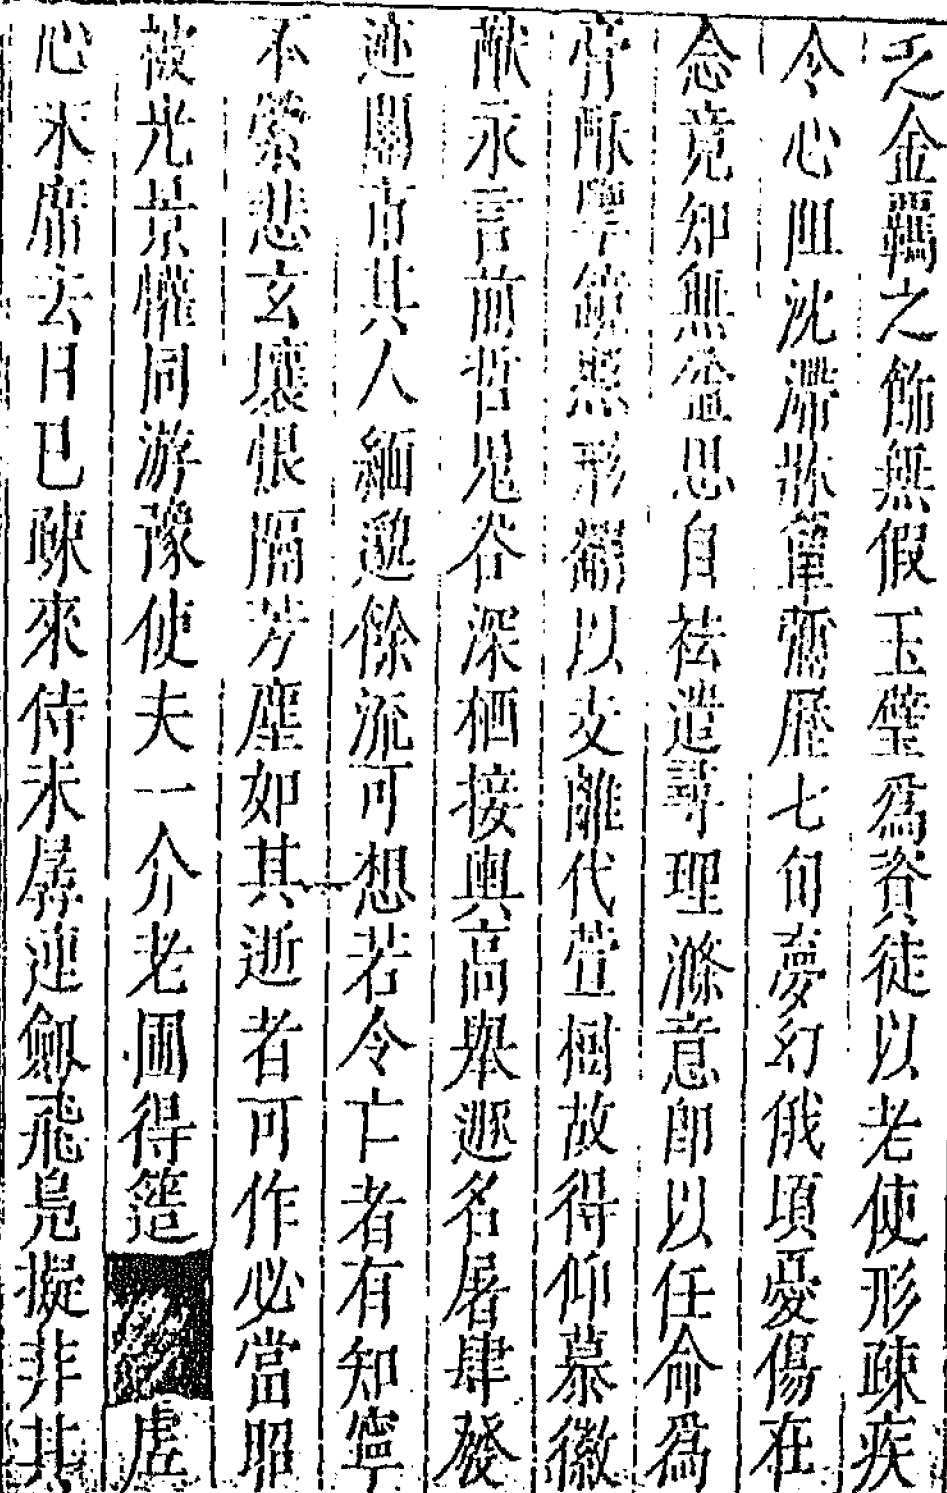 乏金羈之飾無假玉璧爲資徒以老使形疎疾
令心阻沈滯牀簟彌歷七旬夢幻俄頃憂傷在
念竟知無益思自祛遣尋理滌意即以任命爲
膏酥擥鏡照形翻以支離代萱樹故得仰慕徽
猷永言前哲鬼谷深栖接輿高舉遯名屠肆發
迹關市其人緬邈餘流可想若令亡者有知寧
不縈悲玄壤悵隔芳塵如其逝者可作必當昭
被光景懽同游豫使夫一介老圃得簉虛
心末席去日已疎來侍未孱連劒飛鳧擬非其